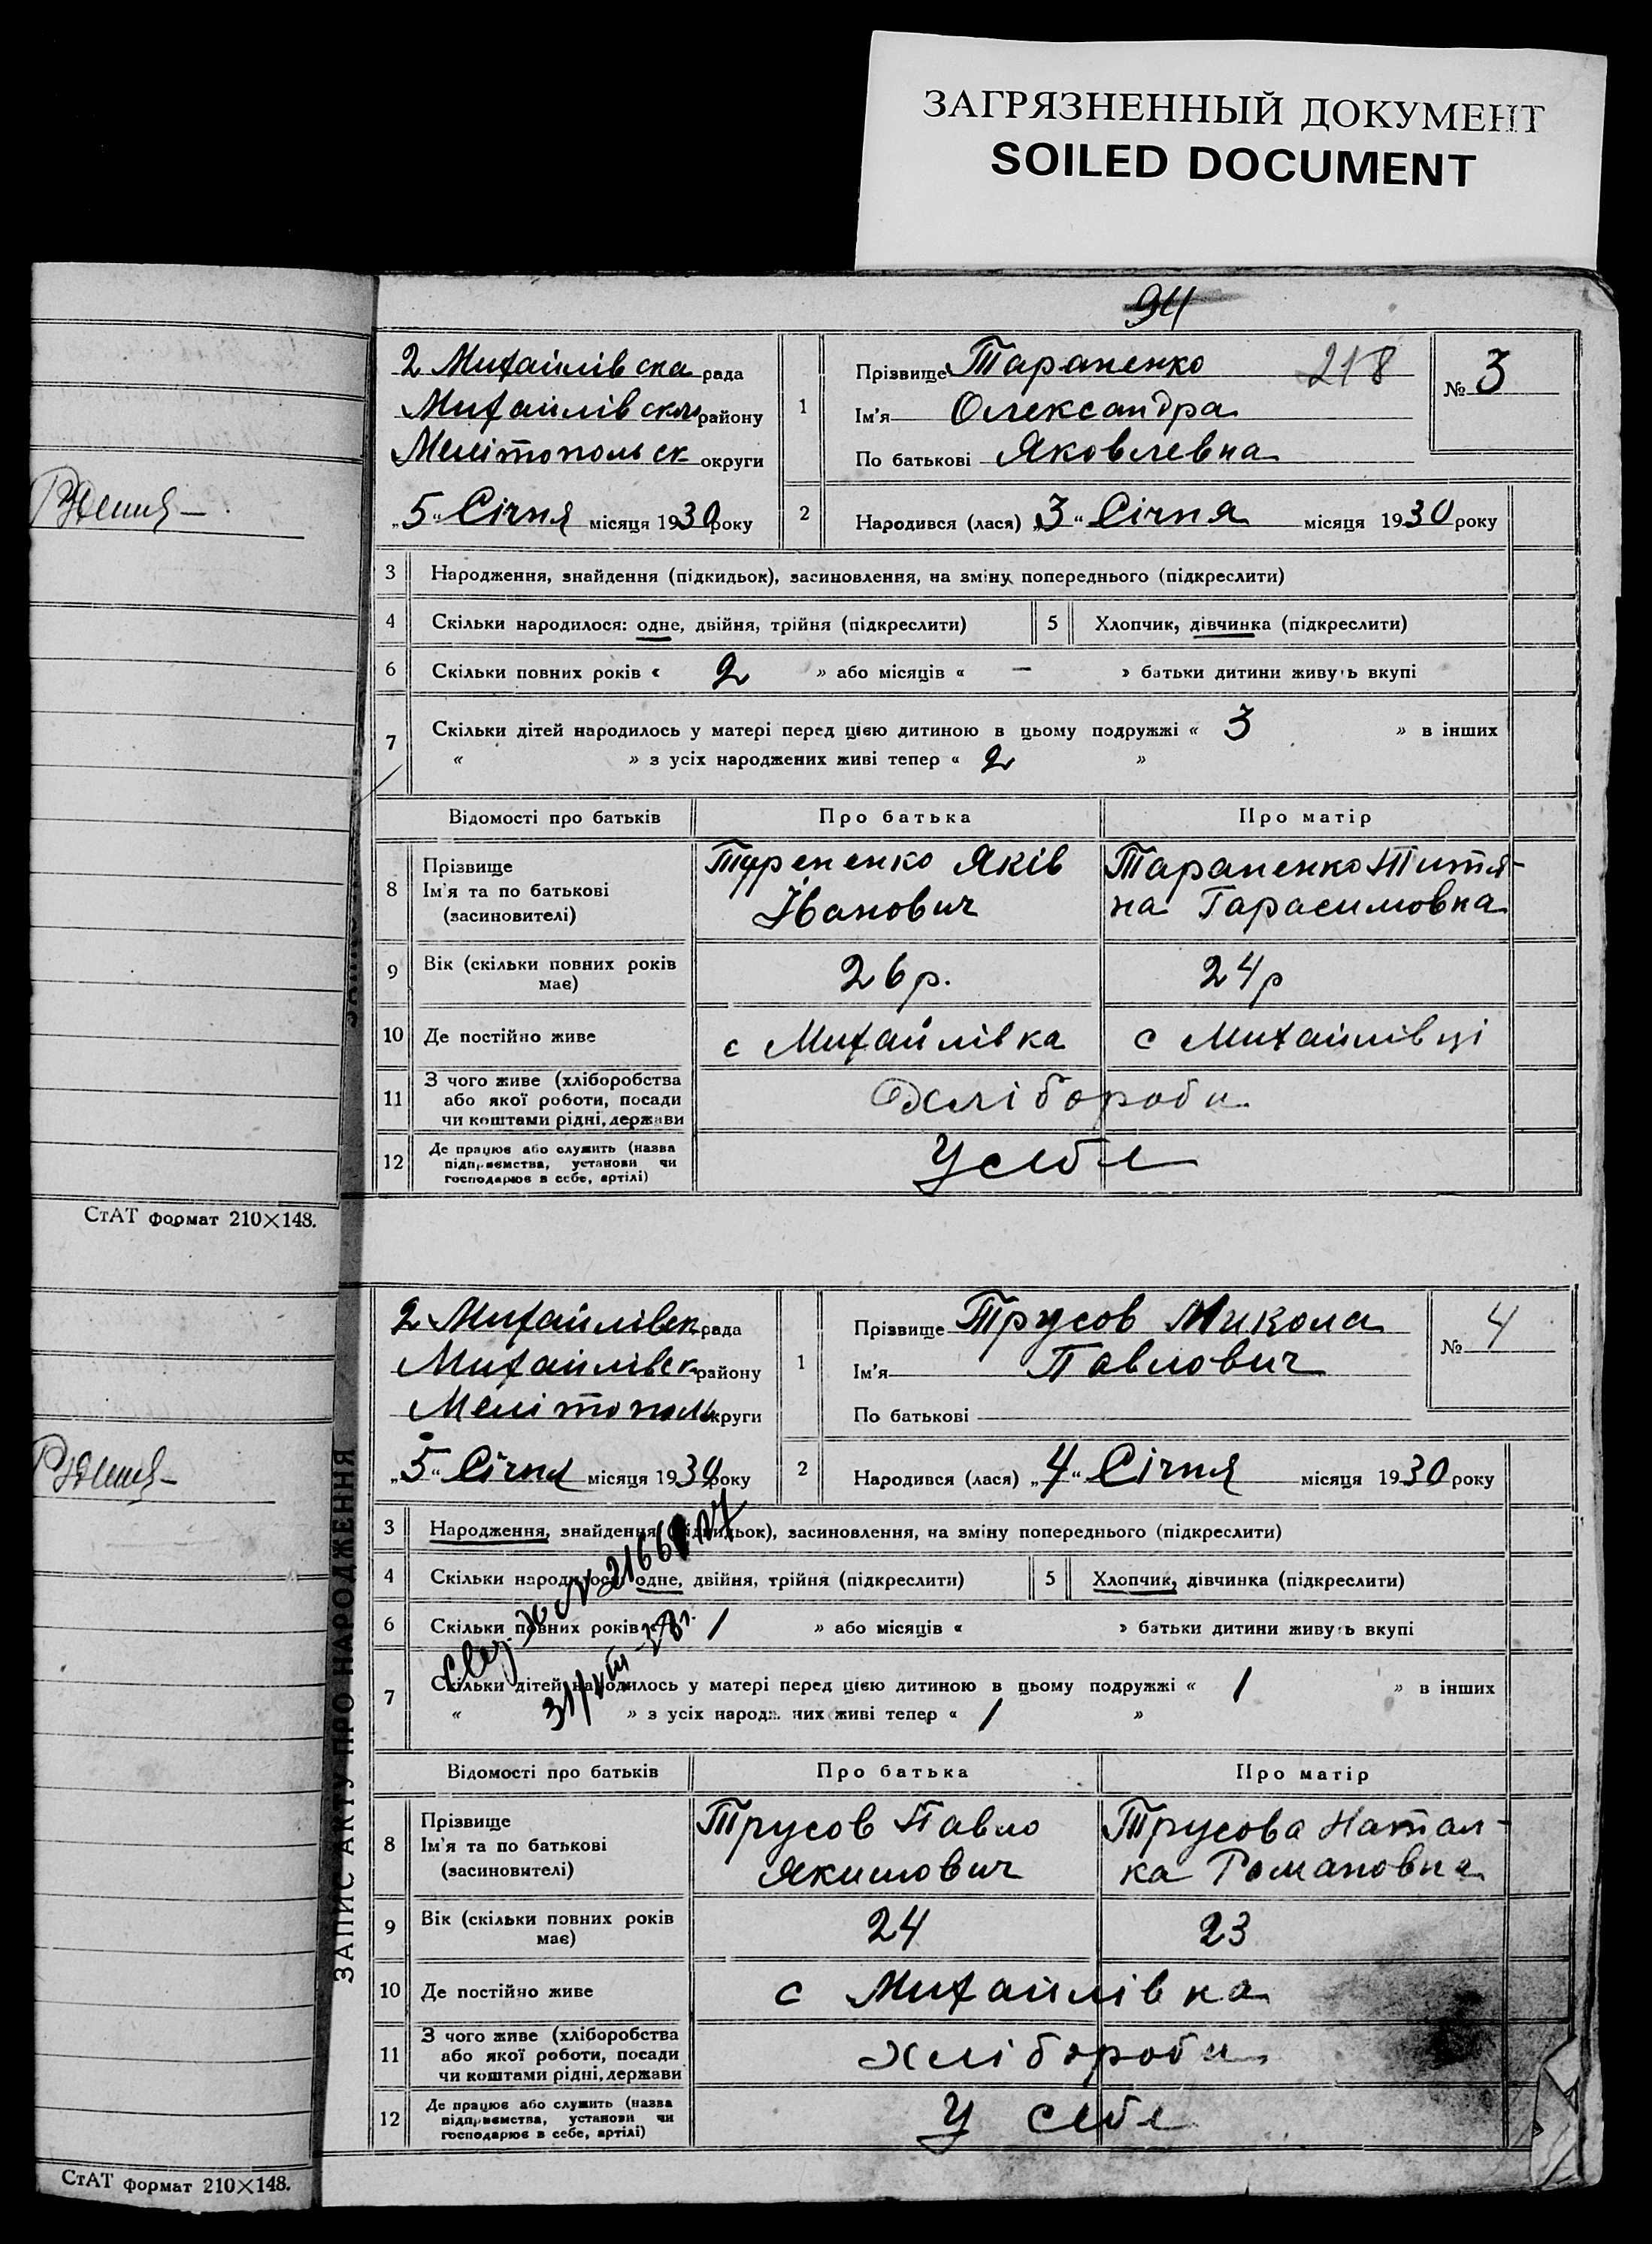 ЗАГРЯЗНЕННЫЙ ДОКУМЕНТ
SOILED DOCUMENT
94
2 Михайлівска рада
Михайлівск району
Мелітопольск округи
„5“ Січня місяця 1930 року
1
Прізвище Тараненко 218
Ім'я Олександра
По батькові Яковлевна
№ 3
2
Народився (лася) „3“ Січня місяця 1930 року
3 Народження, знайдення (підкидьок), засиновлення, на зміну попереднього (підкреслити)
4 Скільки народилося: одне, двійня, трійня (підкреслити) 5 Хлопчик, дівчинка (підкреслити)
6 Скільки повних років « 2 » або місяців « — » батьки дитини живуть вкупі
7 Скільки дітей народилось у матері перед цією дитиною в цьому подружжі « 3 » в інших
« » з усіх народжених живі тепер « 2 »
Відомості про батьків Про батька Про матір
8 Прізвище
Ім'я та по батькові
(засиновителі)
Тарененко Яків
Іванович
Тараненко Титя-
на Гарасимовна
9 Вік (скільки повних років
має)
26 р. 24 р
10 Де постійно живе с Михайлівка с Михайлівці
11 З чого живе (хліборобства
або якої роботи, посади
чи коштами рідні, держави
Хлібороби
12 Де працює або служить (назва
підприємства, установи чи
господарює в себе, артілі)
У себе
СтАТ формат 210×148.
2 Михайлівск рада
Михайлівск району
Мелітополь округи
„5“ Січня місяця 1930 року
1
Прізвище Трусов Микола
Ім'я Павлович
По батькові
№ 4
2
Народився (лася) „4“ Січня місяця 1930 року
3 Народження, знайдення (підкидьок), засиновлення, на зміну попереднього (підкреслити)
4 Скільки народилося: одне, двійня, трійня (підкреслити) 5 Хлопчик, дівчинка (підкреслити)
6 Скільки повних років « 1 » або місяців « » батьки дитини живуть вкупі
7 Скільки дітей народилось у матері перед цією дитиною в цьому подружжі « 1 » в інших
« » з усіх народжених живі тепер « 1 »
Відомості про батьків Про батька Про матір
8 Прізвище
Ім'я та по батькові
(засиновителі)
Трусов Павло
Якимович
Трусова Натал-
ка Романовна
9 Вік (скільки повних років
має)
24 23
10 Де постійно живе с Михайлівка
11 З чого живе (хліборобства
або якої роботи, посади
чи коштами рідні, держави
хлібороби
12 Де працює або служить (назва
підприємства, установи чи
господарює в себе, артілі)
У себе
ЗАПИС АКТУ ПРО НАРОДЖЕННЯ
СтАТ формат 210×148.